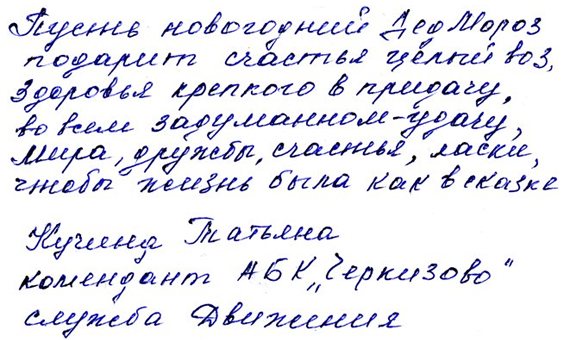 Пусть новогодний Дед Мороз
подарит счастья целый воз,
Здоровья крепкого в придачу,
во всем задуманном-удачу,
Мира, дружбы, счастья, ласки,
чтобы жизнь была как в сказке
Кучина Татьяна
комендант АБК „Черкизово"
служба Движения